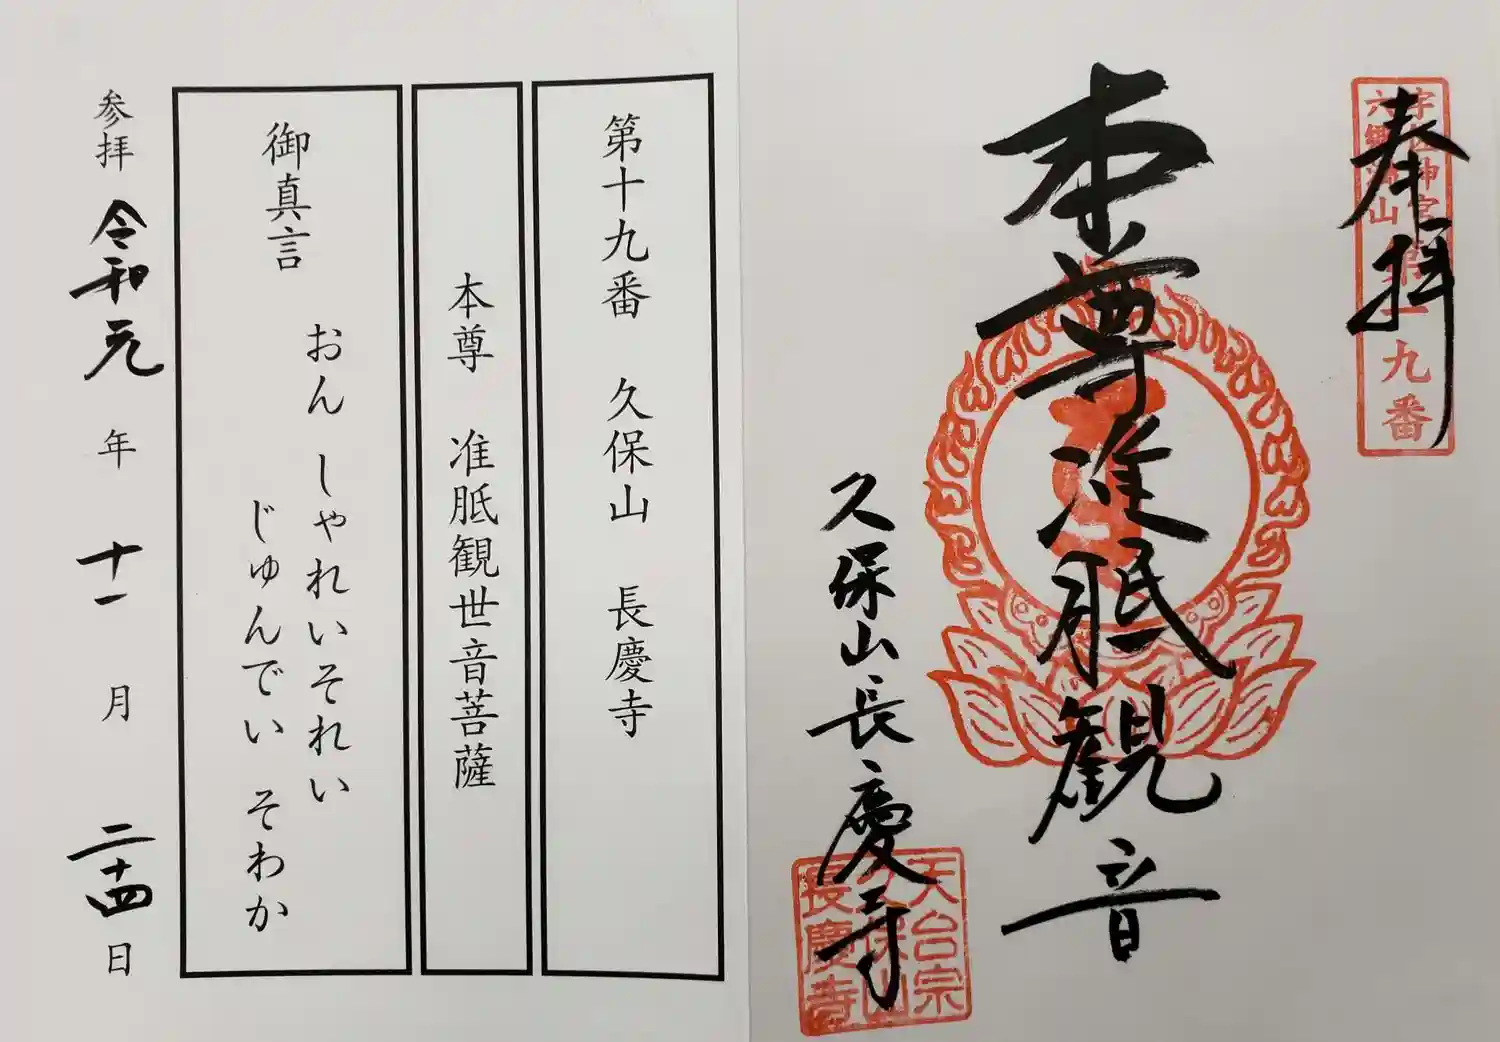 奉拝
宇佐神宮
六郷満山
第十九番
本尊准胝観音
久保山長慶寺
天台宗
久保山
長慶寺
第十九番 久保山 長慶寺
本尊 准胝観世音菩薩
御真言
おん しゃれいそれい
じゅんでい そわか
参拝 令和元年 十一月 二十四日